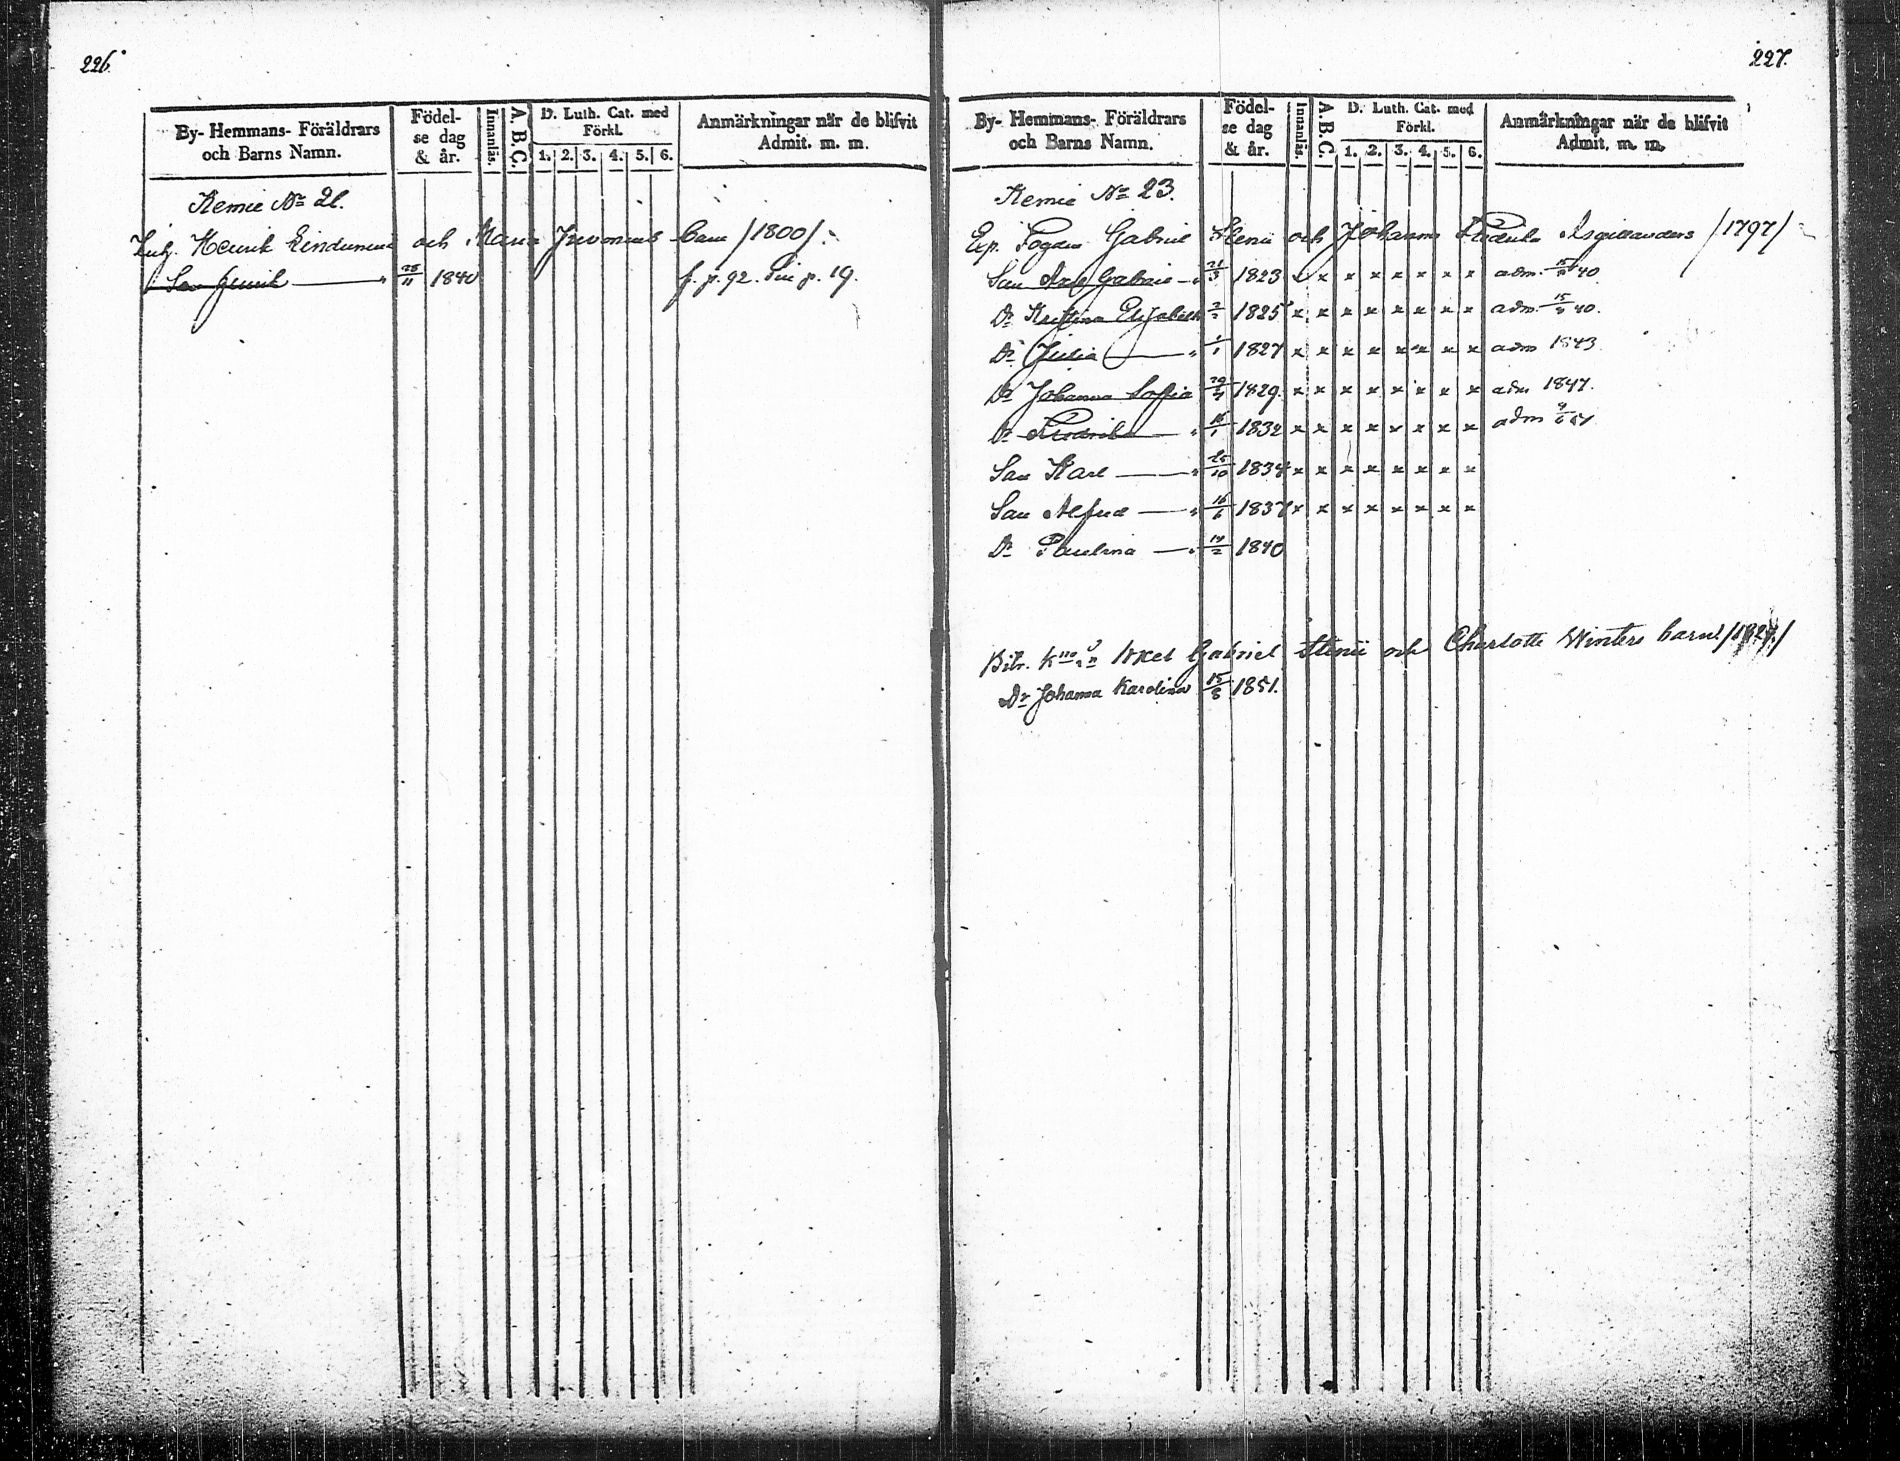 226.
By- Hemmans- Föräldrars och Barns Namn.
Födelse dag & år.
Innanläs.
A. B. C.
D. Luth. Cat. med Förkl.
1. 2. 3. 4. 5. 6.
Anmärkningar när de blifvit Admit. m. m.
Kemie No 21.
Henrik och Maria barn /1800/.
Son Henrik 25/11 1840 f. p. 92. p. 19.
227.
By- Hemmans- Föräldrars och Barns Namn.
Födelse dag & år.
Innanläs.
A. B. C.
D. Luth. Cat. med Förkl.
1. 2. 3. 4. 5. 6.
Anmärkningar när de blifvit Admit. m. m.
Kemie No 23.
Exp. Fogden Gabriel Stenii och Johanna Fredrika /1797/
Son Axel Gabriel 21/3 1823 x x x x x x x adm. 40.
Dr Kristina Elisabeth 1825 x x x x x x x x adm. 40.
Dr Julia 1827 x x x x x x x x adm 1843.
Dr Johanna Sofia 1829. x x x x x x x x adm 1847.
Dr Fredrika 1832 x x x x x x x x adm
Son Karl 1834 x x x x x x x x
Son Alfred 16/6 1837 x x x x x x x x
Dr Paulina 14/2 1840
Axel Gabriel Stenii och Charlotte Winters barn
Dr Johanna Karolina 15/8 1851.